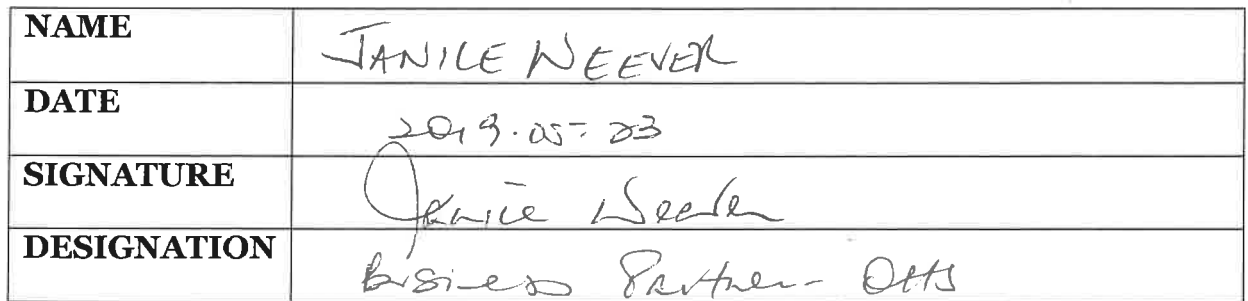 NAME JANICE NEEVER
DATE 2019.05-23
SIGNATURE Janice Neever
DESIGNATION Business Partner - OHS